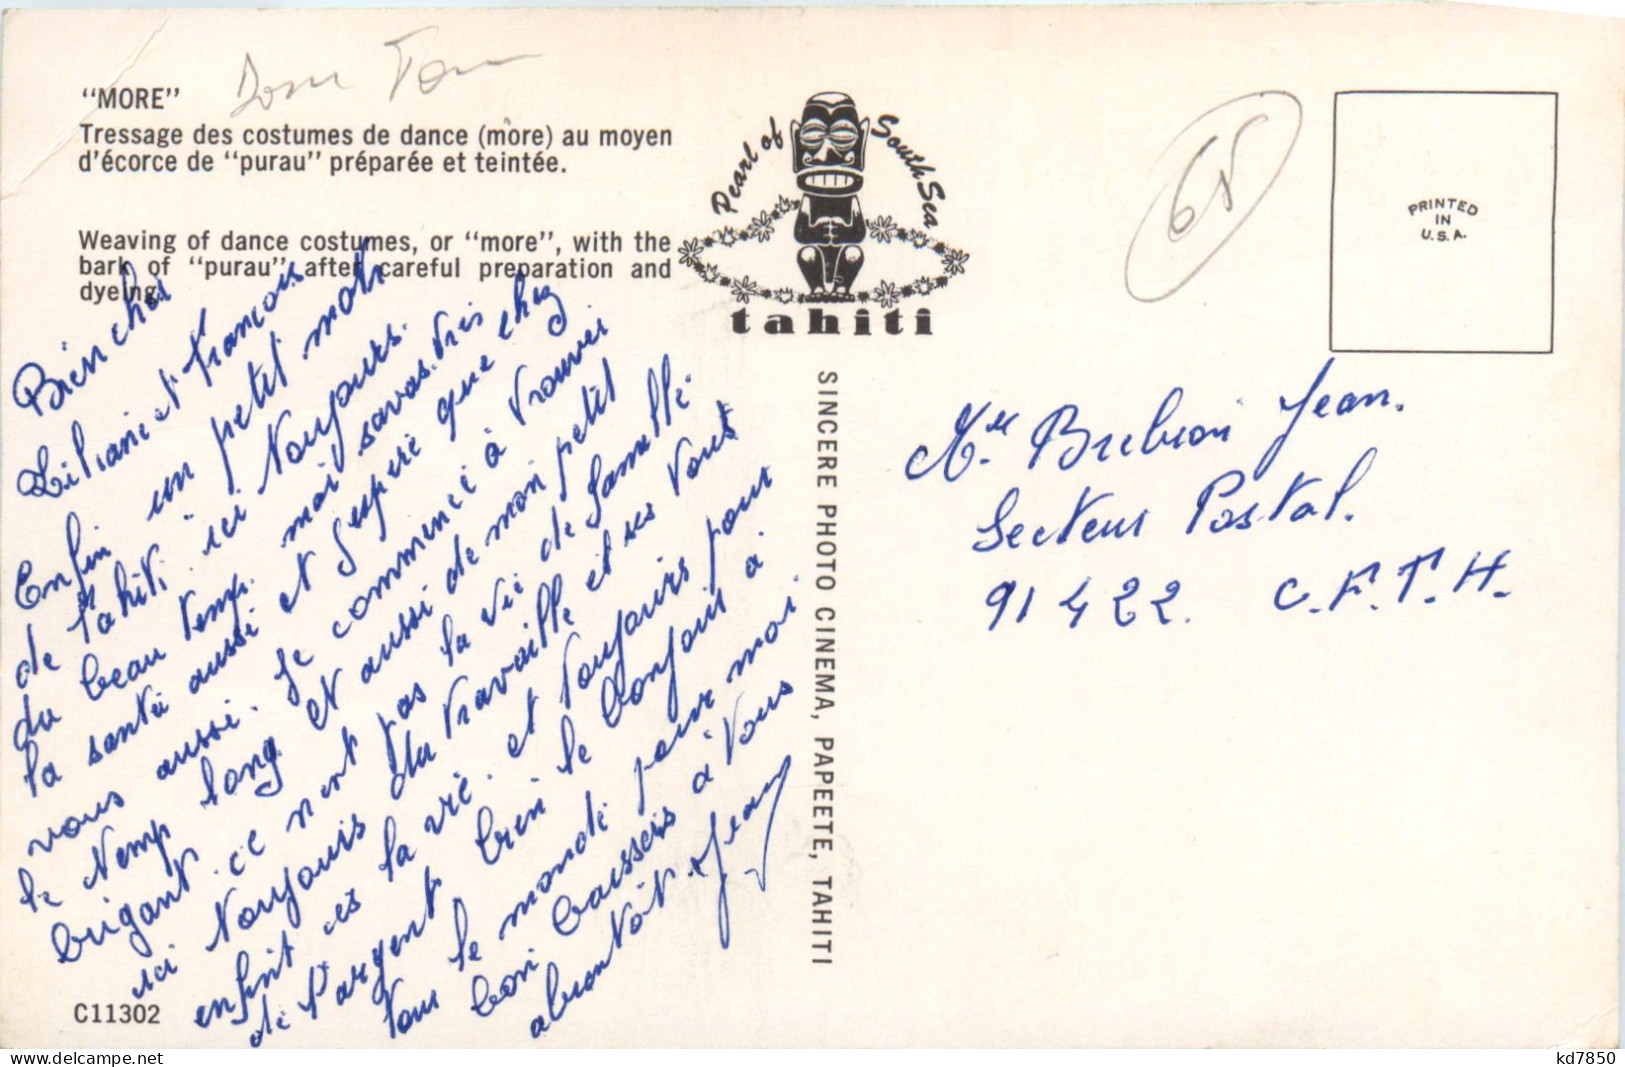 "MORE"
Dom Tom
Tressage des costumes de dance (more) au moyen
d'écorce de "purau" préparée et teintée.
Weaving of dance costumes, or "more", with the
bark of "purau" after careful preparation and
dyeing.
Pearl of South Sea
tahiti
65
PRINTED
IN
U.S.A.
SINCERE PHOTO CINEMA, PAPEETE, TAHITI
Bien cher
Liliane et François
Enfin un petit mots
de Tahiti. ici toujours.
du beau temp. moi savas. tres
la santé aussi et J'espere que chez
vous aussi. Je commence à trouver
le temp long et aussi de mon petit
brigant. ce n'est pas la vie de famille.
ici toujours du travaille et ses tout
enfint ces la vie. et toujours pour
de l'argent bien le bonjour à
tous le monde pour moi.
bon baissers à vous
abientôt. Jean
Mr Jean.
Secteur Postal.
91422. C.F.T.H.
C11302
kd7850
delcampe.net